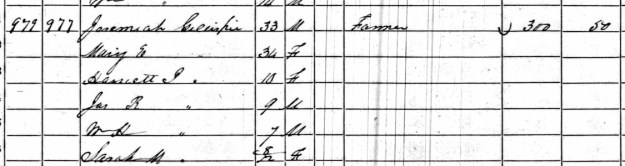 979 977 Jeremiah Gillispie 33 M Farmer 300 50
Mary E 34 F
Harriett J " 10 F
Jas R " 9 M
Wm H " 7 M
Sarah M " F